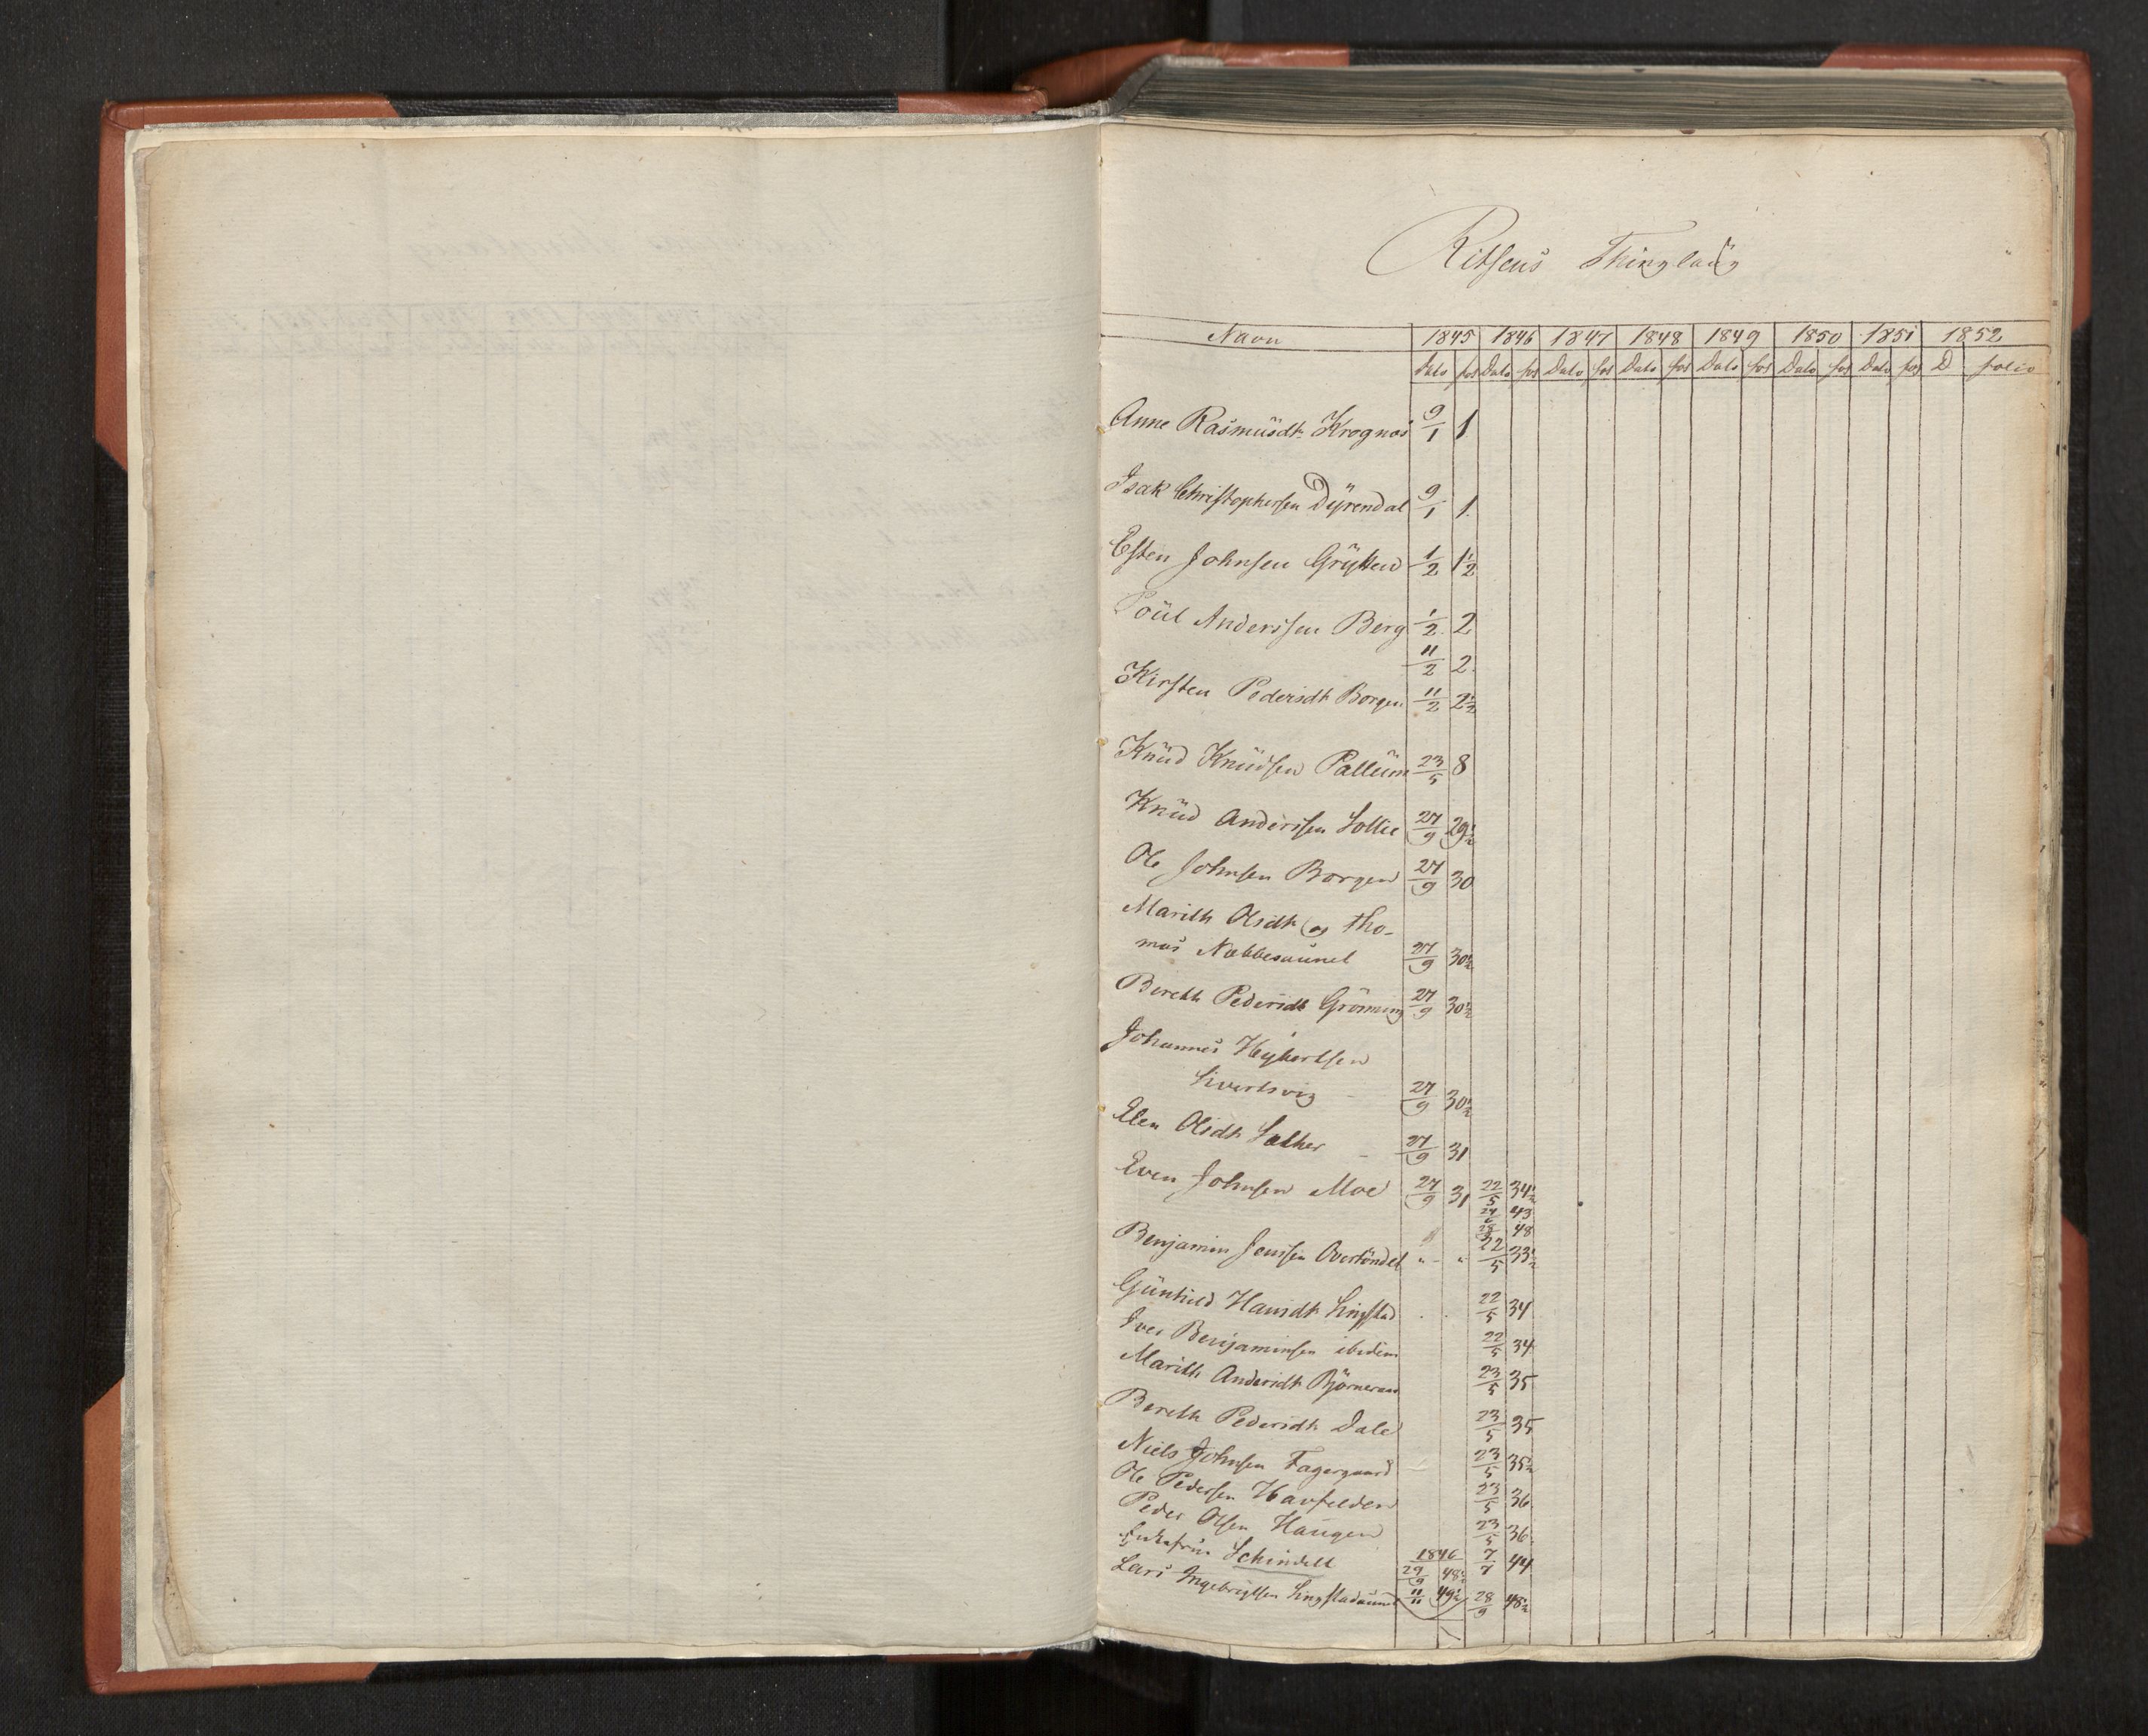 Ritseus Thinglaŭg
Navn 1845 1846 1847 1848 1849 1850 1851 1852
Dato fol Dato fol Dato fol Dato fol Dato fol Dato fol Dato fol D folio
Anne Rasmŭsdt. Krognæs 9/1 1
Isak Christophersen Dyrendal 9/1 1.
Esten Johnsen Grytten 1/2 1½
Poŭl Anderssen Berg 1/2 2
11/2 2.
Kirsten Pedersdt Borgen 11/2 2½
Knŭd Knŭdsen Pallŭm 23/5 8
Knŭd Anderssen Sollie 27/9 29½
Ole Johnsen Borgen 27/9 30
Marith Olsdt og Tho-
mas Nebbesaŭnet 27/9 30½
Bereth Pedersdt Grönning 27/9 30½
Johannes Heybertsen
Sivertsvig 27/9 30½
Elen Olsdt Sæther 27/9 31
Even Johnsen Moe 27/9 31 22/5 34½
27/6 43
28/9 48
Benjamin Jonssen 22/5 33½
Gŭnhild Hansdt Singstad 22/5 34
Iver Benjaminsen ibidem 22/5 34
Marith Andersdt Björneraas 23/5 35
Bereth Pedersdt Dale 23/5 35
Niels Johnsen Fagergaard 23/5 35½
Ole Pedersen Havfelden 23/5 36
Peder Olsen Haŭgen 23/5 36.
Enkefrue Schindell 1846 7/7 44
29/9 48½
Lars Ingebrigtsen Singstadaŭnet 11/11 49½ 28/9 48½